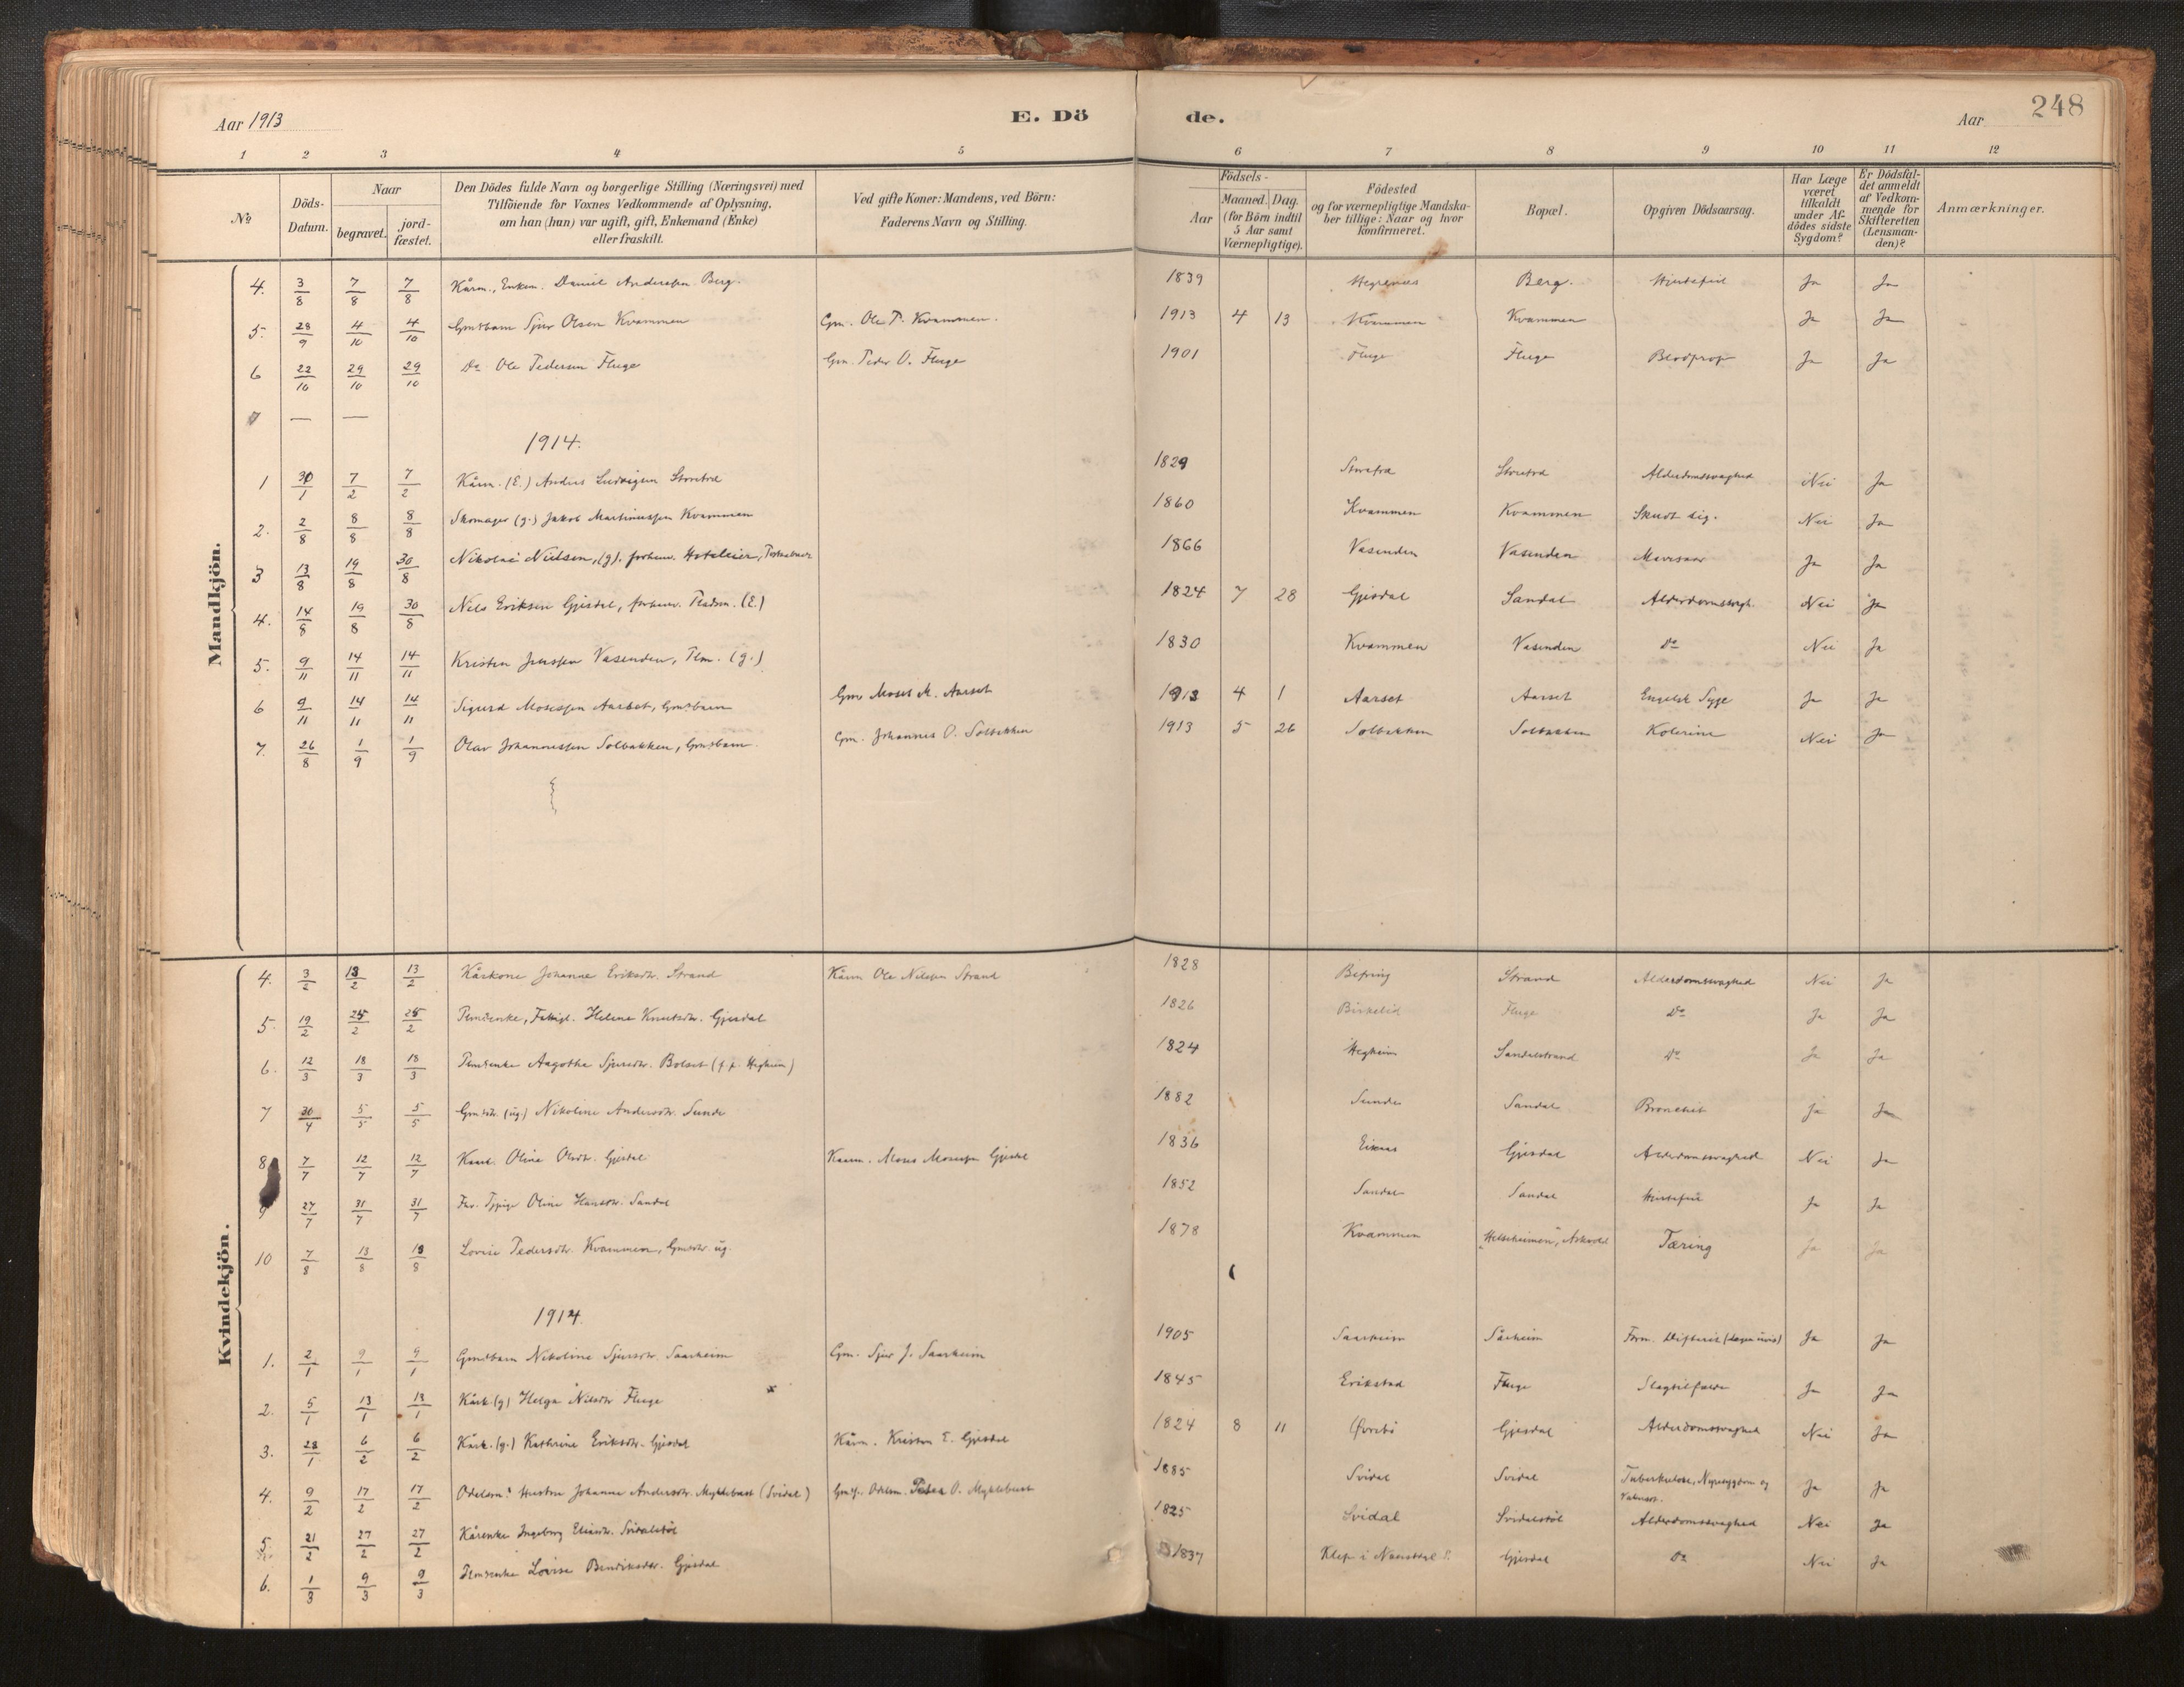 Aar 1913 E. Dö de. Aar 248
1 2 3 4 5 6 7 8 9 10 11 12
No Döds-Datum. Naar begravet. jord-fæstet. Den Dödes fulde Navn og borgerlige Stilling (Næringsvei) med Tilföiende for Voxnes Vedkommende af Oplysning, om han (hun) var ugift, gift, Enkemand (Enke) eller fraskilt. Ved gifte Koner: Mandens, ved Börn: Faderens Navn og Stilling. Födsels- Aar Maaned. Dag. (for Börn indtil 5 Aar samt Værnepligtige). Födested og for værnepligtige Mandskaber tillige: Naar og hvor konfirmeret. Bopæl. Opgiven Dödsaarsag. Har Læge været tilkaldt under Afdödes sidste Sygdom? Er Dödsfaldet anmeldt af Vedkommende for Skifteretten (Lensmanden)? Anmærkninger.
Mandkjön.
4. 3/8 7/8 7/8 Kårm., Enkem. Daniel Anderssen Berg. 1839 Hegrenes Berg. Hjertefeil Ja Ja
5. 28/9 4/10 4/10 Gmdbarn Sjur Olsen Kvammen Gm. Ole P. Kvammen. 1913 4 13 Kvammen Kvammen Ja Ja
6 22/10 29/10 29/10 Do Ole Pedersen Fluge Gm. Peder O. Fluge 1901 Fluge Fluge Blodprop Ja Ja
7 — —
1914.
1 30/1 7/2 7/2 Kårm. (E.) Anders Ludvigsen Storetra 1829 Storetra Alderdomssvaghed Nei Ja
2. 2/8 8/8 8/8 Skomager (g.) Jakob Martinussen Kvammen 1860 Kvammen Kvammen Skudt sig. Nei Ja
3 13/8 19/8 30/8 Nikolai Nielsen, (g). forhenv. Hoteleier, 1866 Vasenden Vasenden Mavesaar Ja Ja
4. 14/8 19/8 30/8 Nels Eriksen Gjesdal, forhenv. (E.) 1824 7 28 Gjesdal Sandal Nei Ja
5. 9/11 14/11 14/11 Kristen Jenssen Vasenden, Plm. (g.) 1830 Kvammen Vasenden Do Nei Ja
6 9/11 14/11 14/11 Sigurd Mosessen Aarset, Gmdbarn Gm Moses M. Aarset 1913 4 1 Aarset Aarset Engelsk Syge Ja Ja
7. 26/8 1/9 1/9 Olav Johannessen Solbakken, Gmdbarn. Gm. Johannes O. Solbakken 1913 5 26 Solbakken Solbakken Kolerine Nei Ja
Kvindekjön.
4. 3/2 13/2 13/2 Kårkone Johanne Eriksdtr. Strand Kårm Ole Nilssen Strand 1828 Befring Strand Alderdomssvaghed Nei Ja
5. 19/2 25/2 25/2 Helene Knutsdtr. Gjesdal 1826 Birkelid Fluge Do Ja Ja
6. 12/3 18/3 18/3 Aagothe Sjursdtr. Bolset (f. p. Hegheim) 1824 Hegheim Sandalstrand Do Ja Ja
7 30/4 5/5 5/5 Gmdtr. (ug.) Nikoline Andersdtr. Sunde 1882 Sunde Sandal Bronchit Ja Ja
8 7/7 12/7 12/7 Olina Olsdtr. Gjesdal Kaarm. Moses Mosessen Gjesdal 1836 Eikaas Gjesdal Alderdomssvaghed Nei Ja
9 27/7 31/7 31/7 Oline Hansdtr. Sandal 1852 Sandal Sandal Hjertefeil Ja Ja
10 7/8 13/8 13/8 Lovise Pedersdtr. Kvammen, Gmdtr. ug. 1878 Kvammen „Helseheimen“, Askvoll Tæring Ja Ja
1914.
1. 2/1 9/1 9/1 Gmdbarn Nikoline Sjursdtr. Saarheim Gm. Sjur J. Saarheim 1905 Saarheim Sårheim Form. Difterit Ja Ja
2. 5/1 13/1 13/1 Kårk (g) Helga Nilsdtr Fluge x 1845 Erikstad Fluge Slagtilfælde Ja Ja
3. 28/1 6/2 6/2 Kårk. (g.) Kathrine Eriksdtr. Gjesdal Kårm. Kristen E. Gjesdal 1824 8 11 Øvrebø Gjesdal Alderdomssvaghed Nei Ja
4. 9/2 17/2 17/2 Odelsm. Hustru Johanne Andersdtr. Myklebust (Svidal) Odelsm. Peder O. Myklebust 1885 Svidal Svidal Tuberkulose, Nyresygdom og Ja Ja
5. 21/2 27/2 27/2 Kårenke Ingeborg Eliasdtr. Svidalstøl 1825 Svidal Svidalstøl Alderdomssvaghed Nei Ja
6. 1/3 9/3 9/3 Lovise Bendiksdtr. Gjesdal 1837 Klep i Naustdal P. Gjesdal Do Nei Ja